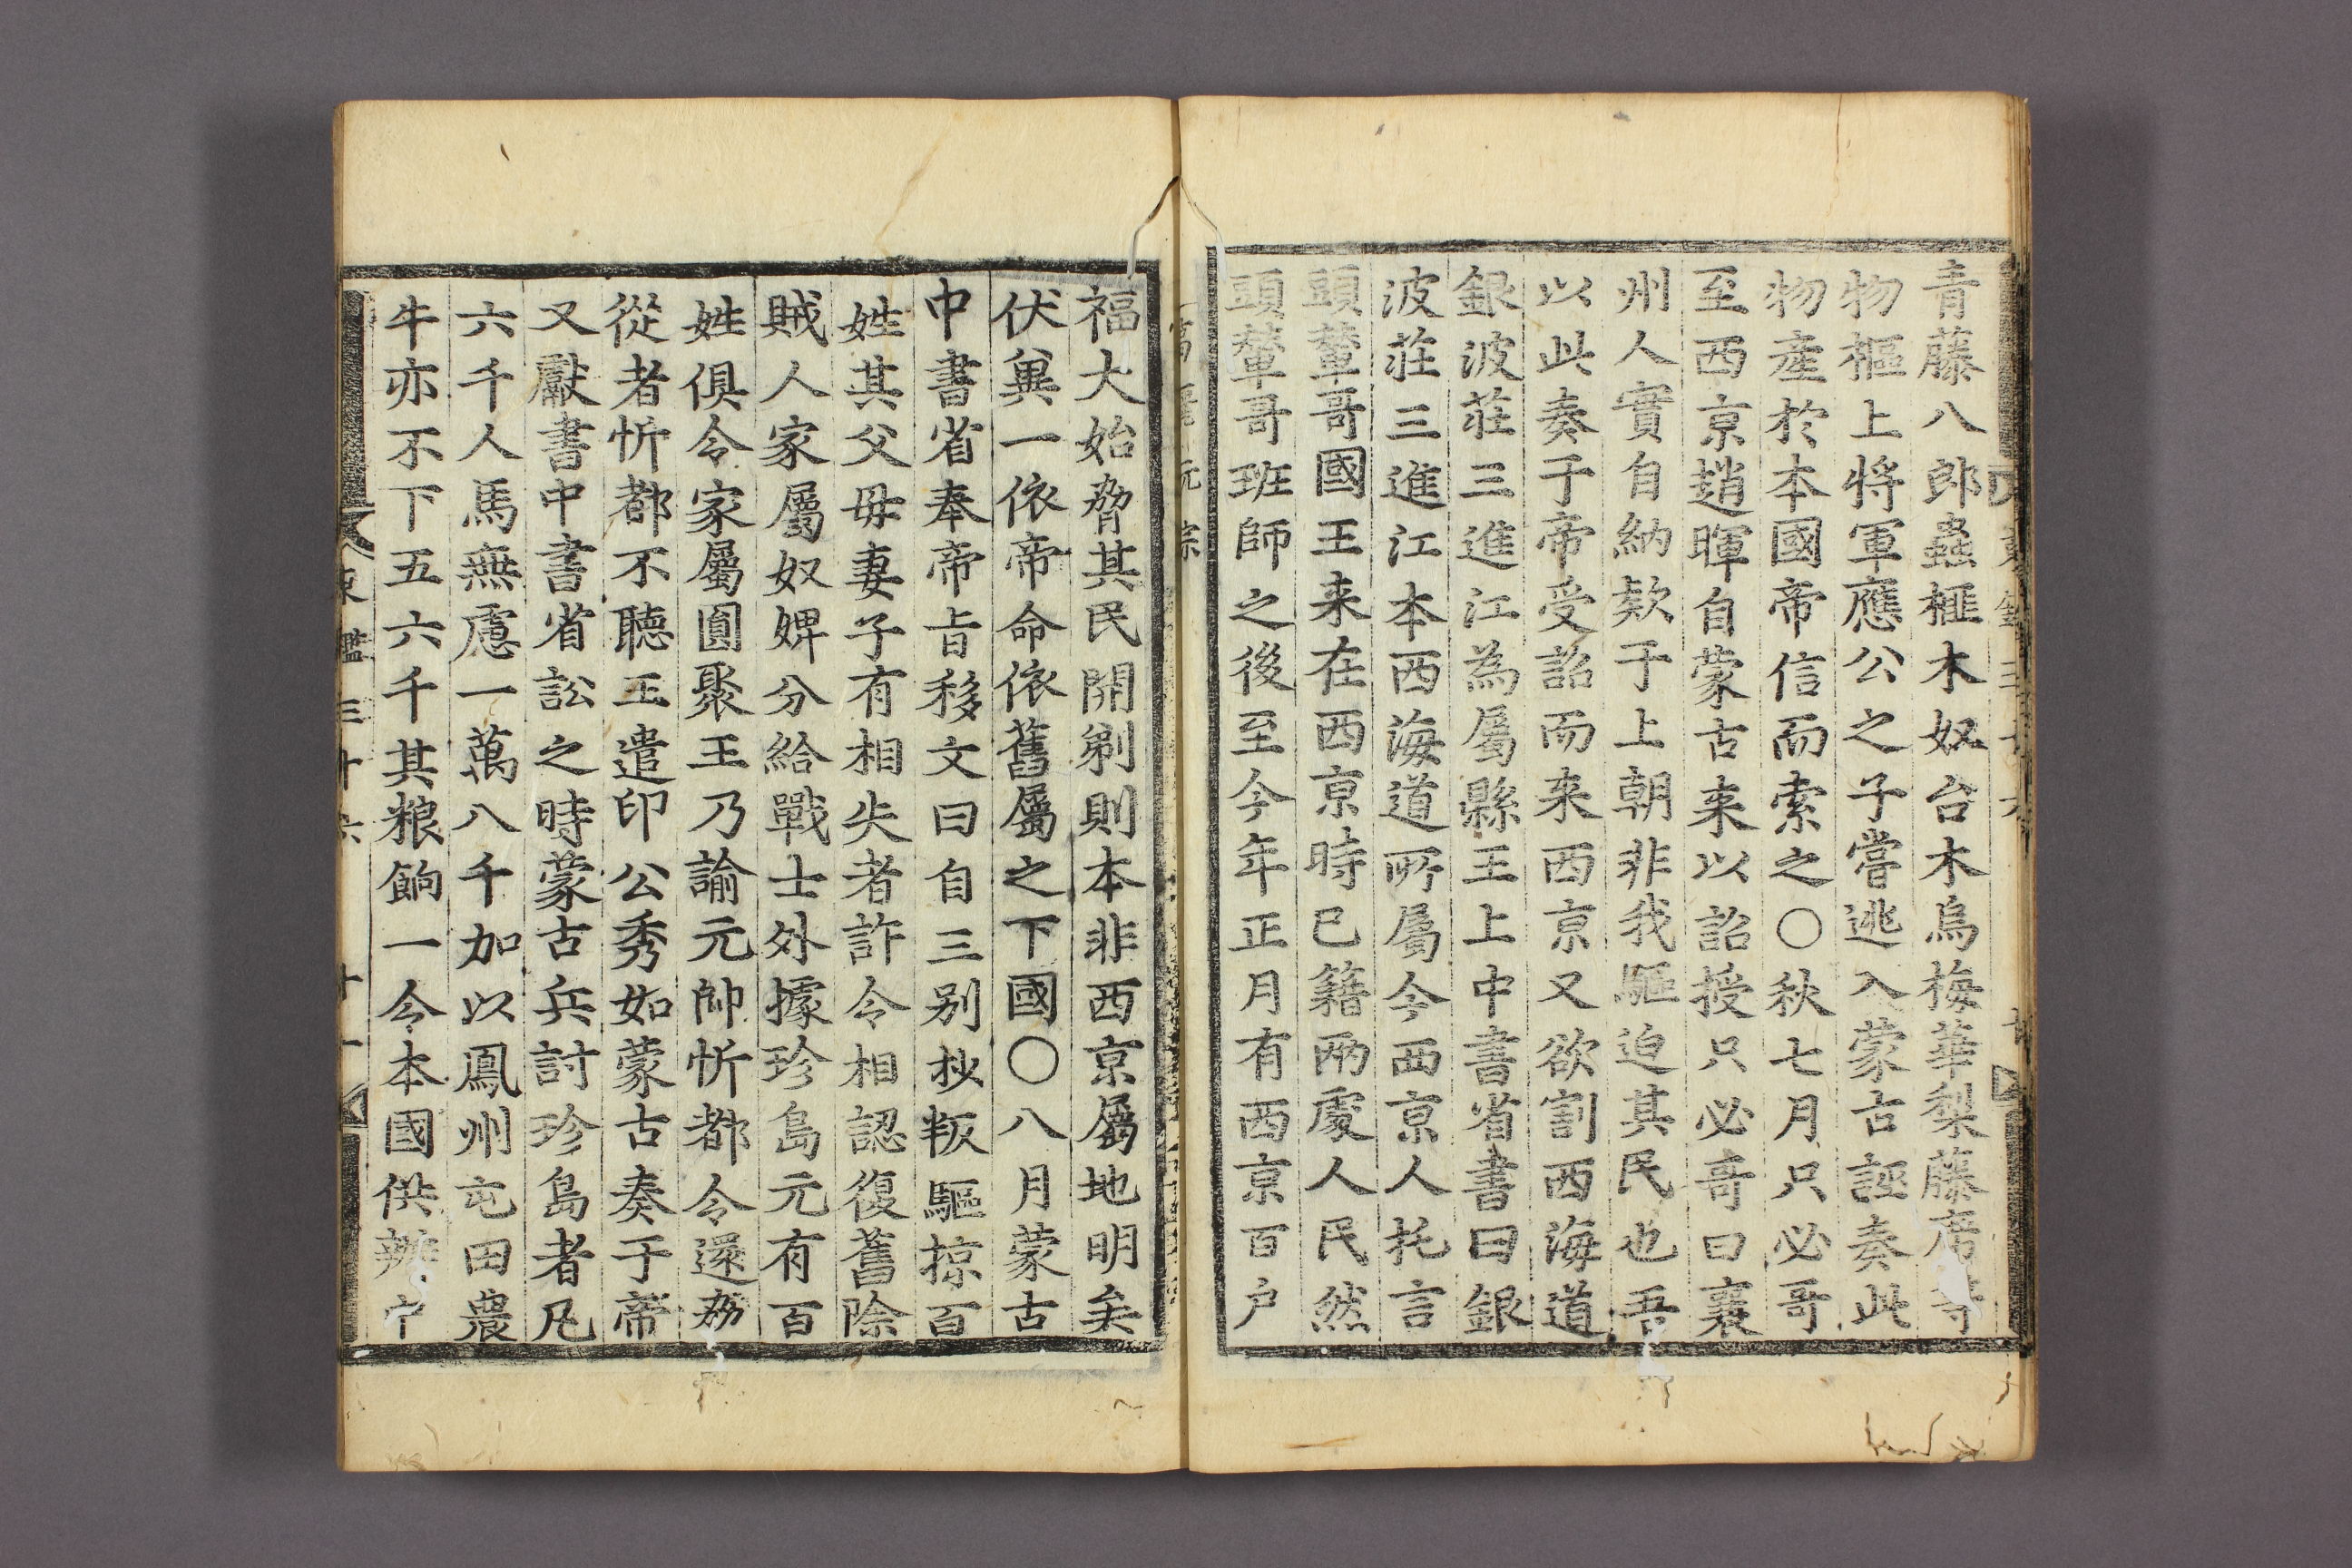 青藤八郎蟲榧木奴台木烏梅華梨藤席等
物樞上將軍應公之子嘗逃入蒙古誣奏此
物產於本國帝信而索之〇秋七月只必哥
至西京趙暉自蒙古来以詔授只必哥曰襄
州人實自納欵于上朝非我驅迫其民也吾
以此奏于帝受詔而来西京又欲割西海道
銀波莊三進江為屬縣王上中書省書曰銀
波莊三進江本西海道所屬今西京人托言
頭輦哥國王来在西京時已籍兩處人民然
頭輦哥班師之後至今年正月有西京百户
福大始脅其民開剃則本非西京屬地明矣
伏兾一依帝命依舊屬之下國〇八月蒙古
中書省奉帝旨移文曰自三别抄叛驅掠百
姓其父毋妻子有相失者許令相認復舊除
賊人家屬奴婢分給戰士外據珍島元有百
姓俱令家屬圓聚王乃諭元帥忻都令還剙
從者忻都不聽王遣印公秀如蒙古奏于帝
又獻書中書省訟之時蒙古兵討珍島者凡
六千人馬無慮一萬八千加以鳳州屯田農
牛亦不下五六千其粮餉一令本國供辨
鑑三十六
十一